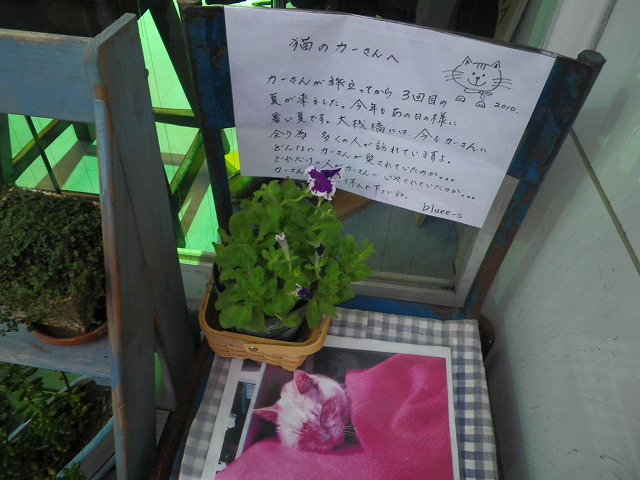 猫のカーさんへ
カーさんが旅立ってから 3回目の
夏が来ました。今年もあの日の様に
2010.
暑い夏です。大桟橋には 今もカーさんに
会う為 多くの人が訪れていますよ。
どんなに カーさんが愛されていたのか。。。
どれだけの人がカーさんに いやされていたのか。。。
カーさん 休んで下さいね。
bluee-s